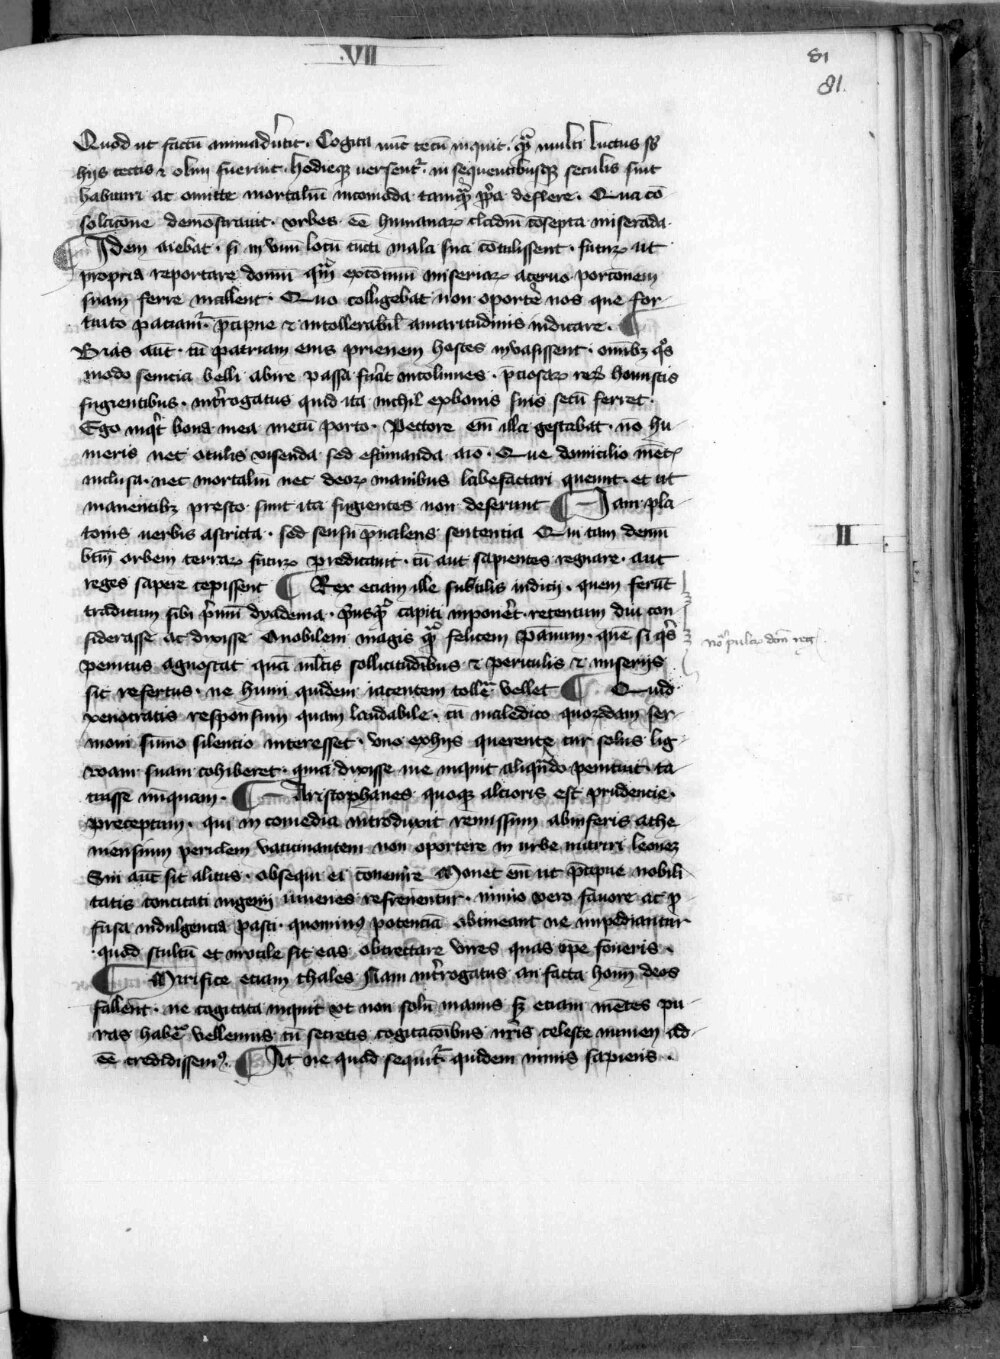 VII
81
81.
Quod ut factū animadūtit. Cogita nūc tecū inquit. q̄ multi luctus sb̄
hijs tectis ⁊ olim fuerint. hodieqꝫ uersent̄. in sequentibusqꝫ seculis sint
habituri ac omitte mortaliū incomoda tamqꝫ ꝓp̄a deflere. Qua cō
solacione demōstrauit. vrbes eē humanaꝝ cladiū cōsepta miserāda
¶ Idem aiebat. si in vnū locū cūcti mala sua cōtulissent. futuꝝ ut
propria reportare domū qm̄ ex cōmuni miseriaꝝ aceruo porcionem
suam ferre mallent. Quo colligebat non oportē nos que for-
tuito paciam̄. p̄cipue ⁊ intollerabil amaritudinis iudicare. ¶
Bias aūt. cū patriam eius prienem hostes inuasissent. omībꝫ q̄s
modo seuicia belli abire passa fuāt incolumes. p̄ciosaꝝ reꝝ honustis
fugientibus. int̄rogatus quid ita nichil ex bonis suis secū ferret.
Ego inq̄t bona mea mecū porto. Pectore em̄ illa gestabat. nō hu
meris nec oculis visenda sed estimanda aīo. Que domicilio mētꝭ
inclusa. nec mortaliū nec deoꝝ manibus labefactari queunt. et ut
manentibꝫ presto sunt ita fugientes non deserunt ¶ Iam pla
tonis uerbis astricta. sed sensu p̄ualens sententia Qui tam demū
II
btm̄ orbem terraꝝ futuꝝ predicauit. cū aut sapientes regnare. aut
reges sapere cepissent ¶ Rex etiam ille subtilis iudicij. quem ferūt
traditum sibi p̄mū dyadema. p̄usqꝫ capiti inponēt. retentum diu con
siderasse ac dixisse O nobilem magis q̄ felicem pannum. que si q̄s
penitus agnoscat quā mltis sollicitudībus ⁊ periculis ⁊ miserijs
sit refertus. ne humi quidem iacentem tollē vellet ¶ Quid
xenocratis responsum quam laudabile. cū maledico quorūdam ser-
moni sūmo silencio interesset. vno ex hijs querente cur solus lig-
wam suam cohiberet. quia dixisse me inquit aliqn̄do penituit. ta
cuisse nūquam. ¶ Aristophanes quoqꝫ alcioris est prudencie.
preceptum. qui in comedia introduxit remissum ab inferis athe
niensium periclem vaticinantem non oportere in urbe nutriri leonez
Sin aūt sit alitus. obsequi ei conuenire Monet em̄ ut p̄cipue nobili
tatis concitati ingenij iuuenes refrenentur. nimio vero fauore ac ꝓ
fusa indulgencia pasti. quominꝰ potenciā obtineant ne impediantur
quod stultū et inutile sit eas obtrectare vires quas ope foueris.
¶ Mirifice etiam thales Nam int̄rogatus an facta hoīm deos
fallent. ne cogitata inquit vt non solū manus sꝫ etiam mētes pu-
ras habē vellemus cū secretis cogitacōibus nr̄is celeste numen ad-
eē credidissemꝰ. ¶ At ne quod sequit̄ quidem minus sapiens.